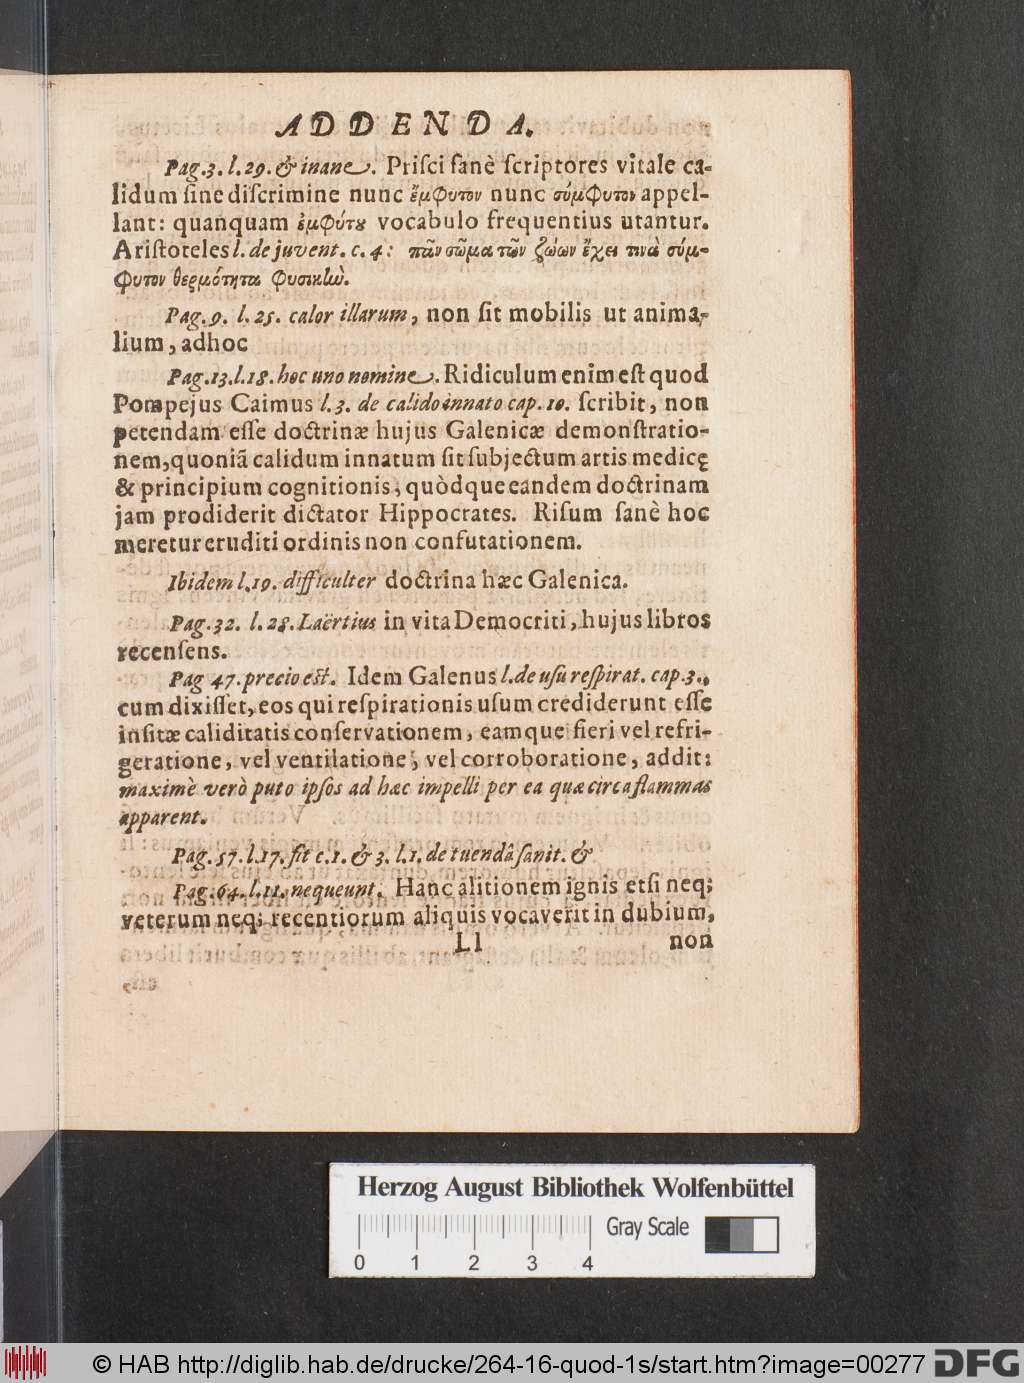 ADDENDA.
Pag.3. l.29. & inane. Prisci sanè scriptores vitale ca-
lidum sine discrimine nunc ἔμφυτον nunc σύμφυτον appel-
lant: quanquam ἐμφύτȣ vocabulo frequentius utantur.
Aristoteles l. de juvent. c. 4: πᾶν σῶμα τῶν ζώων ἔχει τινὰ σύμ-
φυτον θερμότητα φυσικὼ.
Pag.9. l.25. calor illarum, non sit mobilis ut anima-
lium, adhoc
Pag.13.l.18. hoc uno nomine. Ridiculum enim est quod
Pompejus Caimus l.3. de calido innato cap.10. scribit, non
petendam esse doctrinæ hujus Galenicæ demonstratio-
nem, quoniã calidum innatum sit subjectum artis medicę
& principium cognitionis, quòdque eandem doctrinam
jam prodiderit dictator Hippocrates. Risum sanè hoc
meretur eruditi ordinis non confutationem.
Ibidem l.19. difficulter doctrina hæc Galenica.
Pag.32. l.28. Laërtius in vita Democriti, hujus libros
recensens.
Pag 47. precio est. Idem Galenus l.de usu respirat. cap.3.,
cum dixisset, eos qui respirationis usum crediderunt esse
insitæ caliditatis conservationem, eamque fieri vel refri-
geratione, vel ventilatione, vel corroboratione, addit:
maximè verò puto ipsos ad hæc impelli per ea quæ circa flammas
apparent.
Pag.57.l.17. fit c.1. & 3. l.1. de tuendâ sanit. &
Pag.64.l.11. nequeunt. Hanc alitionem ignis etsi neq;
veterum neq; recentiorum aliquis vocaverit in dubium,
Ll non
Herzog August Bibliothek Wolfenbüttel
Gray Scale
0 1 2 3 4
© HAB http://diglib.hab.de/drucke/264-16-quod-1s/start.htm?image=00277 DFG